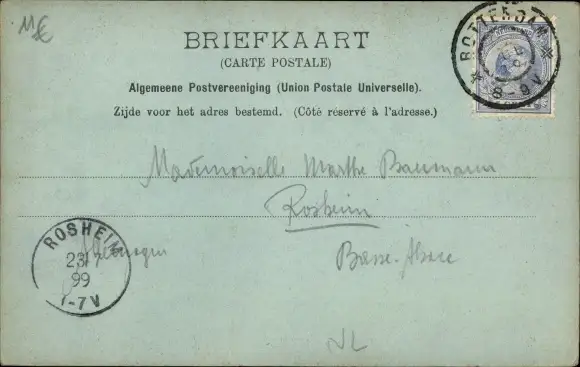 11€
BRIEFKAART
(CARTE POSTALE)
Algemeene Postvereeniging (Union Postale Universelle).
Zijde voor het adres bestemd. (Côté réservé à l'adresse.)
ROTTERDAM
8-9V
Mademoiselle Marthe Baumann
Rosheim
Allemagne
Basse-Alsace
ROSHEIM
23/7
99
-7V
NL